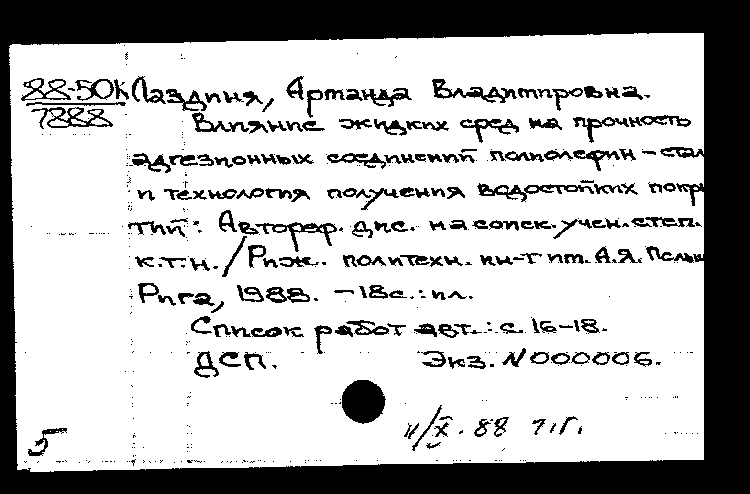 88-50К Лаздиня, Арманда Владимировна.
7888
Влияние жидких сред на прочность
адгезионных соединений полиолефин – стал
и технология получения водостойких покры
тий: Автореф. дис. на соиск. учен. степ.
к.т.н. / Риж. политехн. ин-т им. А.Я. Пельш
Рига, 1988. – 18с.: ил.
Список работ авт.: с. 16–18.
ДСП. Экз. N 000006.
5